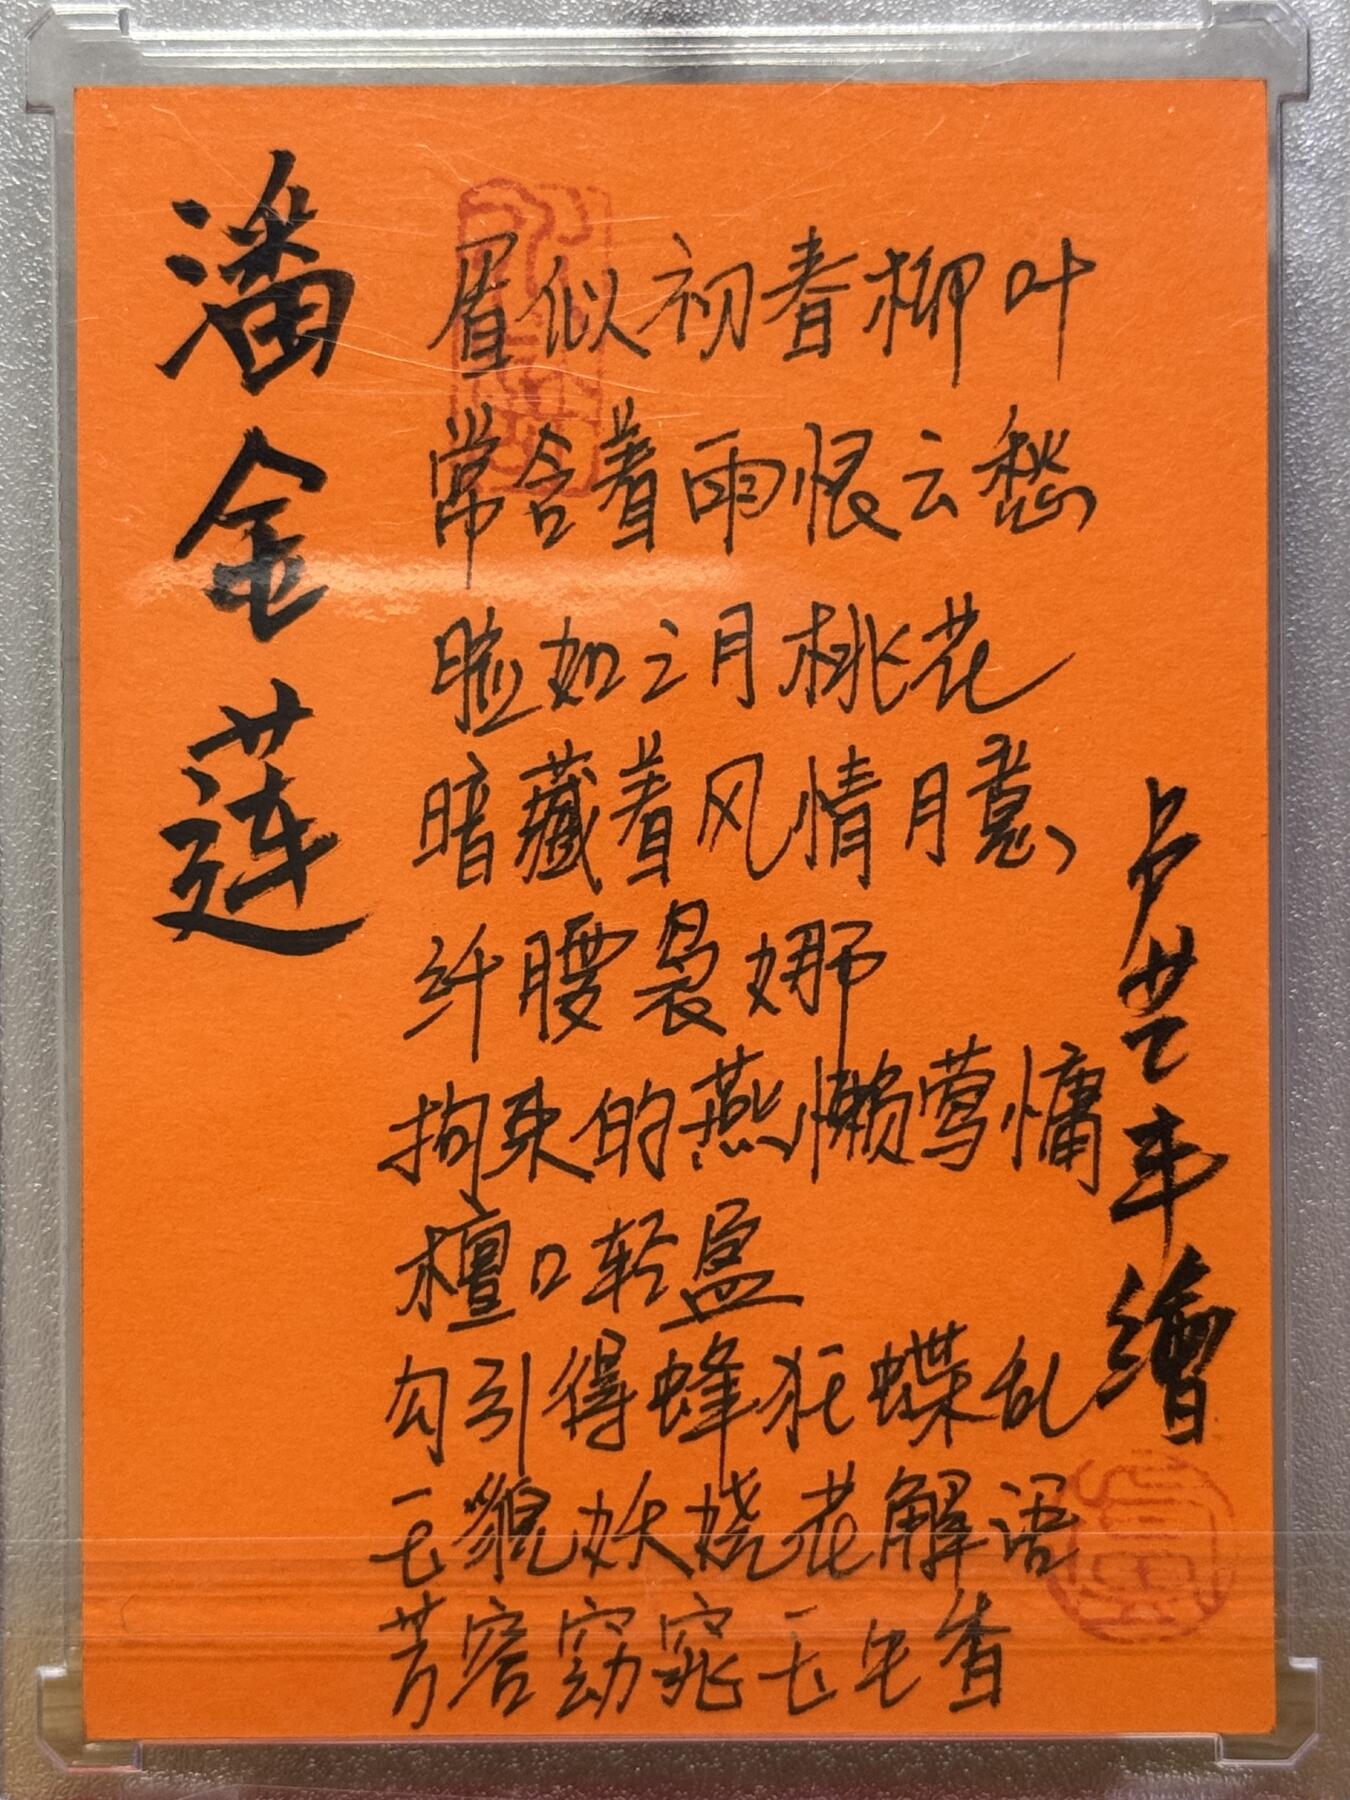 潘金莲
眉似初春柳叶
常含着雨恨云愁
脸如三月桃花
暗藏着风情月意
纤腰袅娜
拘束的燕懒莺慵
檀口轻盈
勾引得蜂狂蝶乱
玉貌妖娆花解语
芳容窈窕玉生香
卢芒丰繪